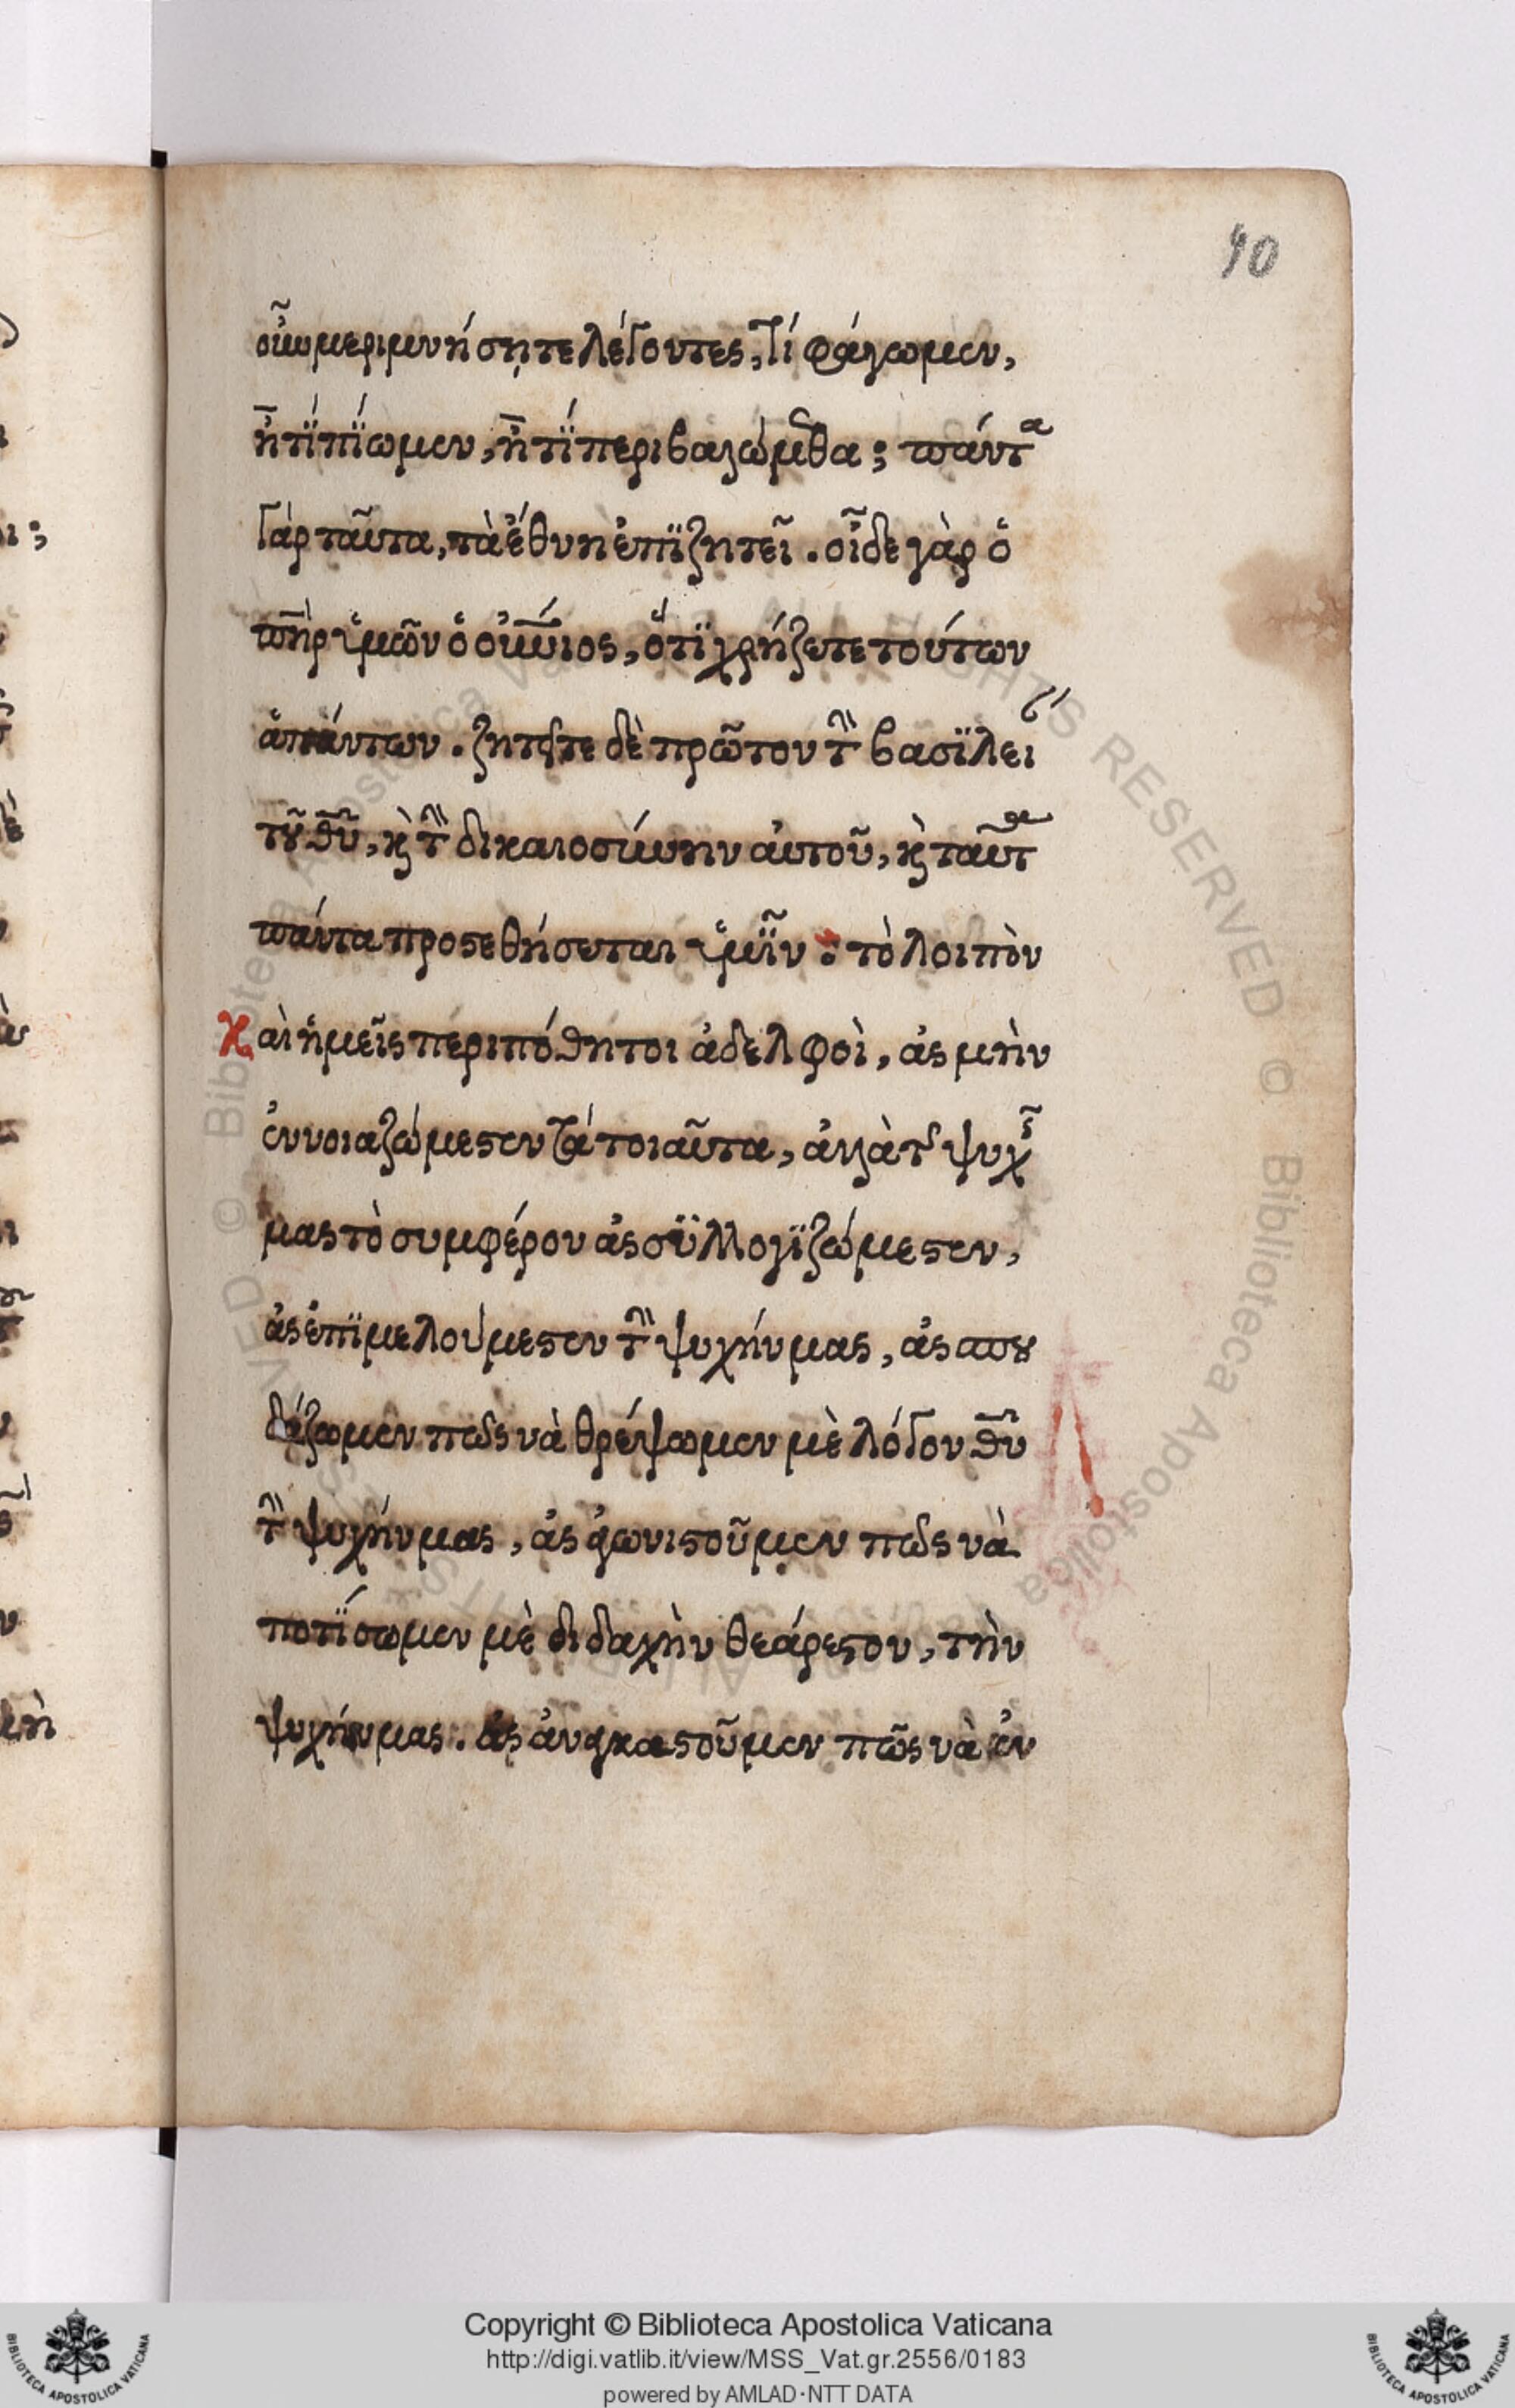 90
οὖν μεριμνήσητε λέγοντες, τί φάγωμεν,
ἢ τί πίωμεν, ἢ τί περιβαλώμεθα; πάντα
γὰρ ταῦτα, τὰ ἔθνη ἐπιζητεῖ. οἶδε γὰρ ὁ
πηρ ὑμῶν ὁ οὐνιος, ὅτι χρήζετε τούτων
ἁπάντων. ζητεῖτε δὲ πρῶτον τὴν βασιλεί
τοῦ θυ, κ τὴν δικαιοσύνην αὐτοῦ, κ ταῦτα
πάντα προσεθήσεται ὑμῖν: τὸ λοιπὸν
καὶ ἡμεῖς περιπόθητοι ἀδελφοὶ, ἂς μὴν
ἐννοιαζώμεσεν τὰ τοιαῦτα, ἀλλὰ τῆς ψυχῆς
μας τὸ συμφέρον ἂς συλλογιζώμεσεν,
ἂς ἐπιμελούμεσεν τὴν ψυχήν μας, ἂς σπου
δάζωμεν πῶς νὰ θρέψωμεν μὲ λόγον θυ
τὴν ψυχήν μας, ἂς ἀγωνιστοῦμεν πῶς νὰ
ποτίσωμεν μὲ διδαχὴν θεάρεστον, τὴν
ψυχήν μας. ἂς ἀναγκαστοῦμεν πῶς νὰ ἐν
Copyright © Biblioteca Apostolica Vaticana
http://digi.vatlib.it/view/MSS_Vat.gr.2556/0183
powered by AMLAD·NTT DATA
BIBLIOTECA APOSTOLICA VATICANA
BIBLIOTECA APOSTOLICA VATICANA